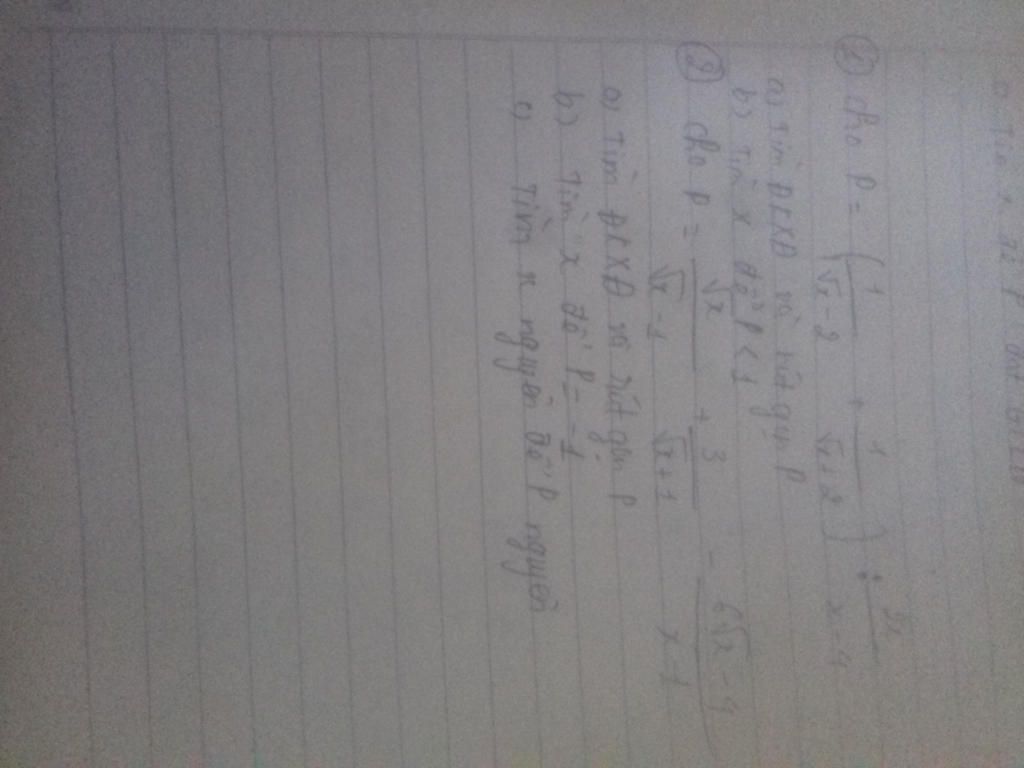 c) Tìm x để P đạt
① cho P = (1/(√x - 2) + 1/(√x + 2)) : 2x/(x - 4)
a) Tìm ĐKXĐ và rút gọn P
b) Tìm x để P < 1
② cho P = √x/(√x - 1) + 3/(√x + 1) - (6√x - 4)/(x - 1)
a) Tìm ĐKXĐ và rút gọn P
b) Tìm x để P = -1
c) Tìm x nguyên để P nguyên